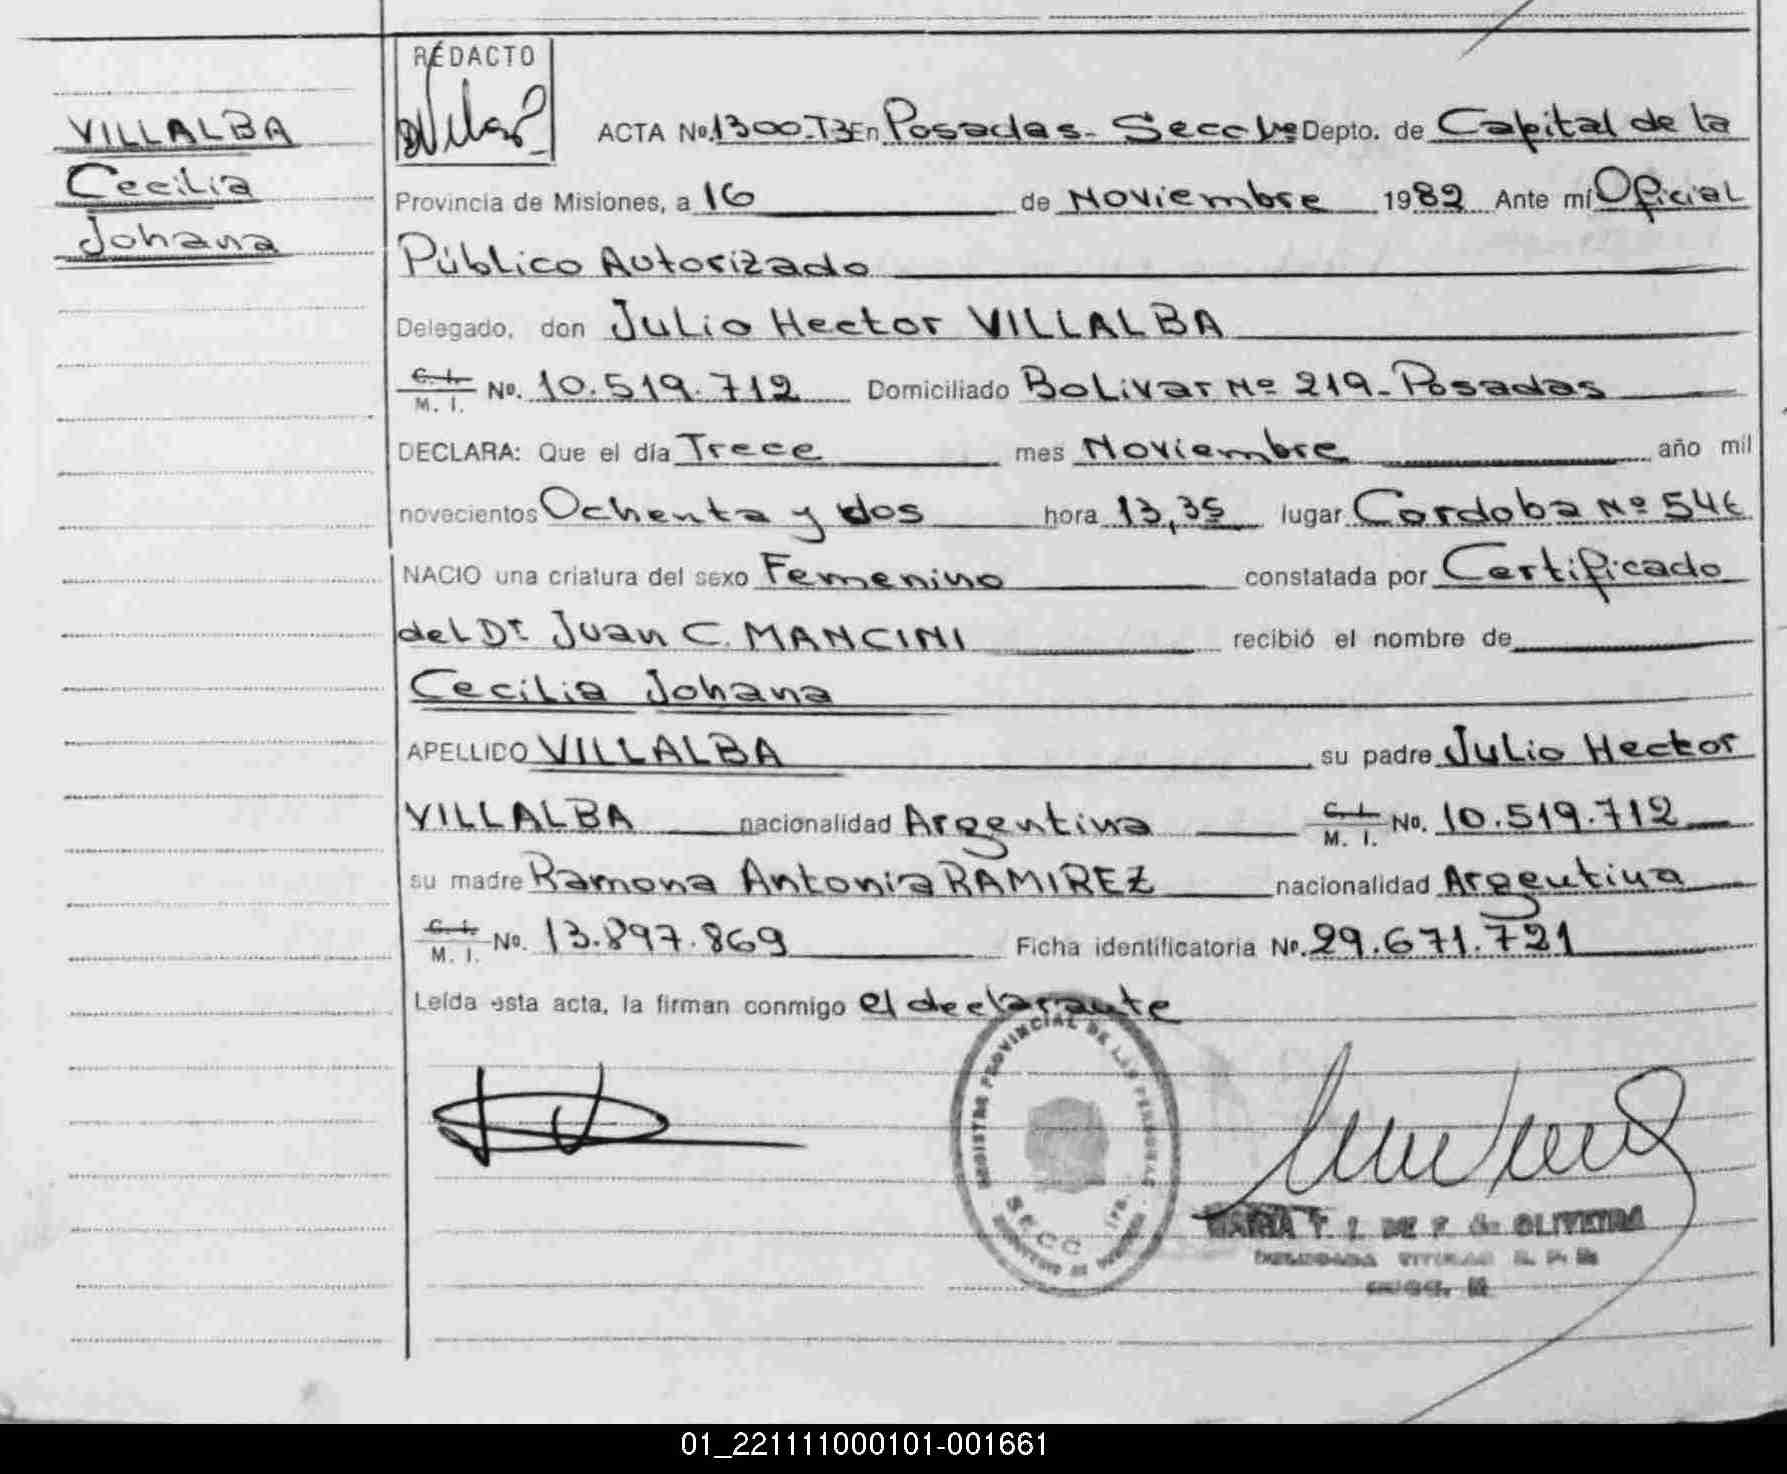 REDACTO
VILLALBA
Cecilia
Johana
ACTA No. 1300-T3 En Posadas- Secc 1ra Depto. de Capital de la
Provincia de Misiones, a 16 de Noviembre 1982 Ante mí Oficial
Público Autorizado
Delegado, don Julio Hector VILLALBA
C. I. M. I. No. 10.519.712 Domiciliado Bolivar Nº 219- Posadas
DECLARA: Que el día Trece mes Noviembre año mil
novecientos Ochenta y dos hora 13,35 lugar Cordoba Nº 546
NACIO una criatura del sexo Femenino constatada por Certificado
del Dr Juan C. MANCINI recibió el nombre de
Cecilia Johana
APELLIDO VILLALBA su padre Julio Hector
VILLALBA nacionalidad Argentina C. I. M. I. No. 10.519.712
su madre Ramona Antonia RAMIREZ nacionalidad Argentina
C. I. M. I. No. 13.897.869 Ficha identificatoria No. 29.671.721
Leída esta acta, la firman conmigo el declarante
REGISTRO PROVINCIAL DE LAS PERSONAS
SECC 1ra.
MARIA T. I. DE F. de OLIVEIRA
DELEGADA TITULAR R. P. P.
SECC.
01_221111000101-001661